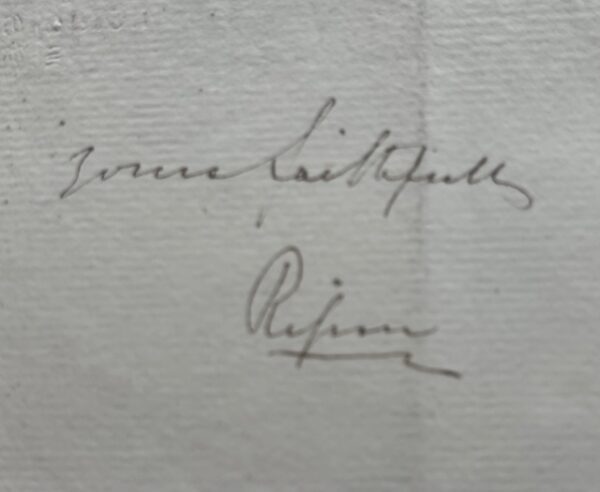 yours faithfully
Ripon